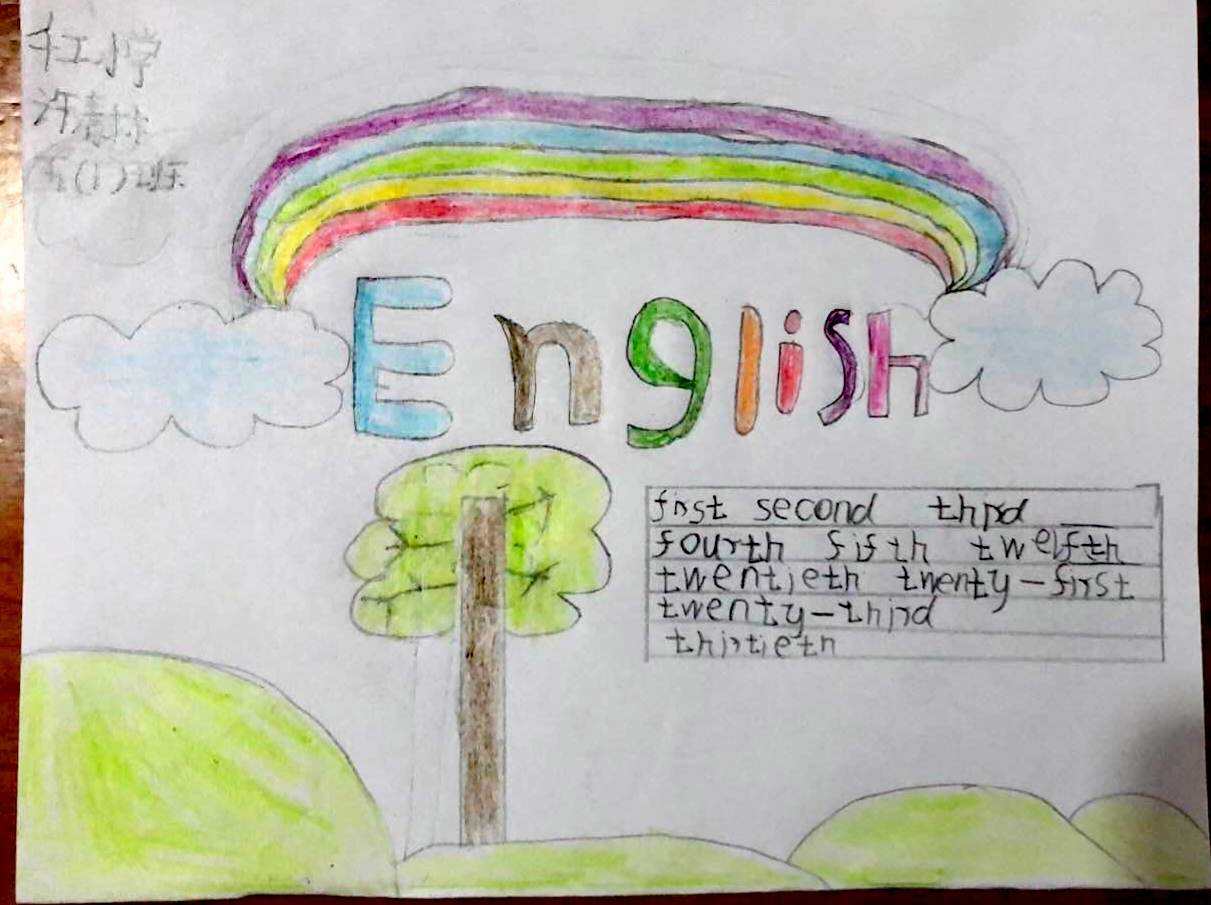 千工小学
许
五(1)班
English
first second third
fourth fifth twelfth
twentieth twenty-first
twenty-third
thirtieth